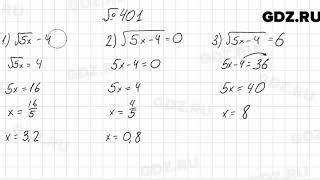 GDZ.RU
№ 401
1) √5x - 4
√5x = 4
5x = 16
x = 16/5
x = 3,2
2) √5x-4 = 0
5x - 4 = 0
5x = 4
x = 4/5
x = 0,8
3) √5x-4 = 6
5x-4 = 36
5x = 40
x = 8
GDZ.RU